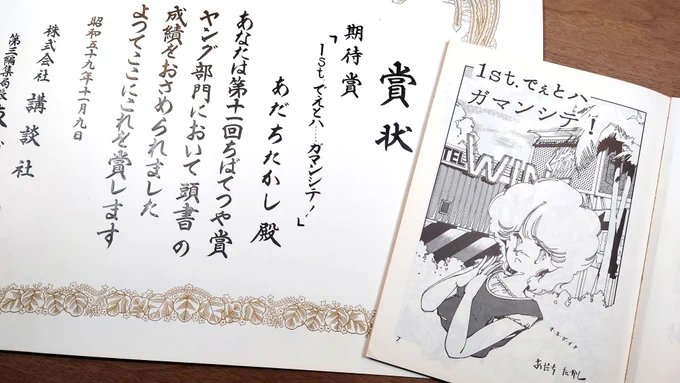 賞状
期待賞
「1st.でぇとハ……ガマンシテ!」
あだちたかし 殿
あなたは第十一回ちばてつや賞
ヤング部門において頭書の
成績をおさめられました
よってここにこれを賞します
昭和五十九年十一月九日
株式会社 講談社
第三編集局長
1st.でぇとハ
ガマンシテ!
TEL WIN
あだち たかし
7